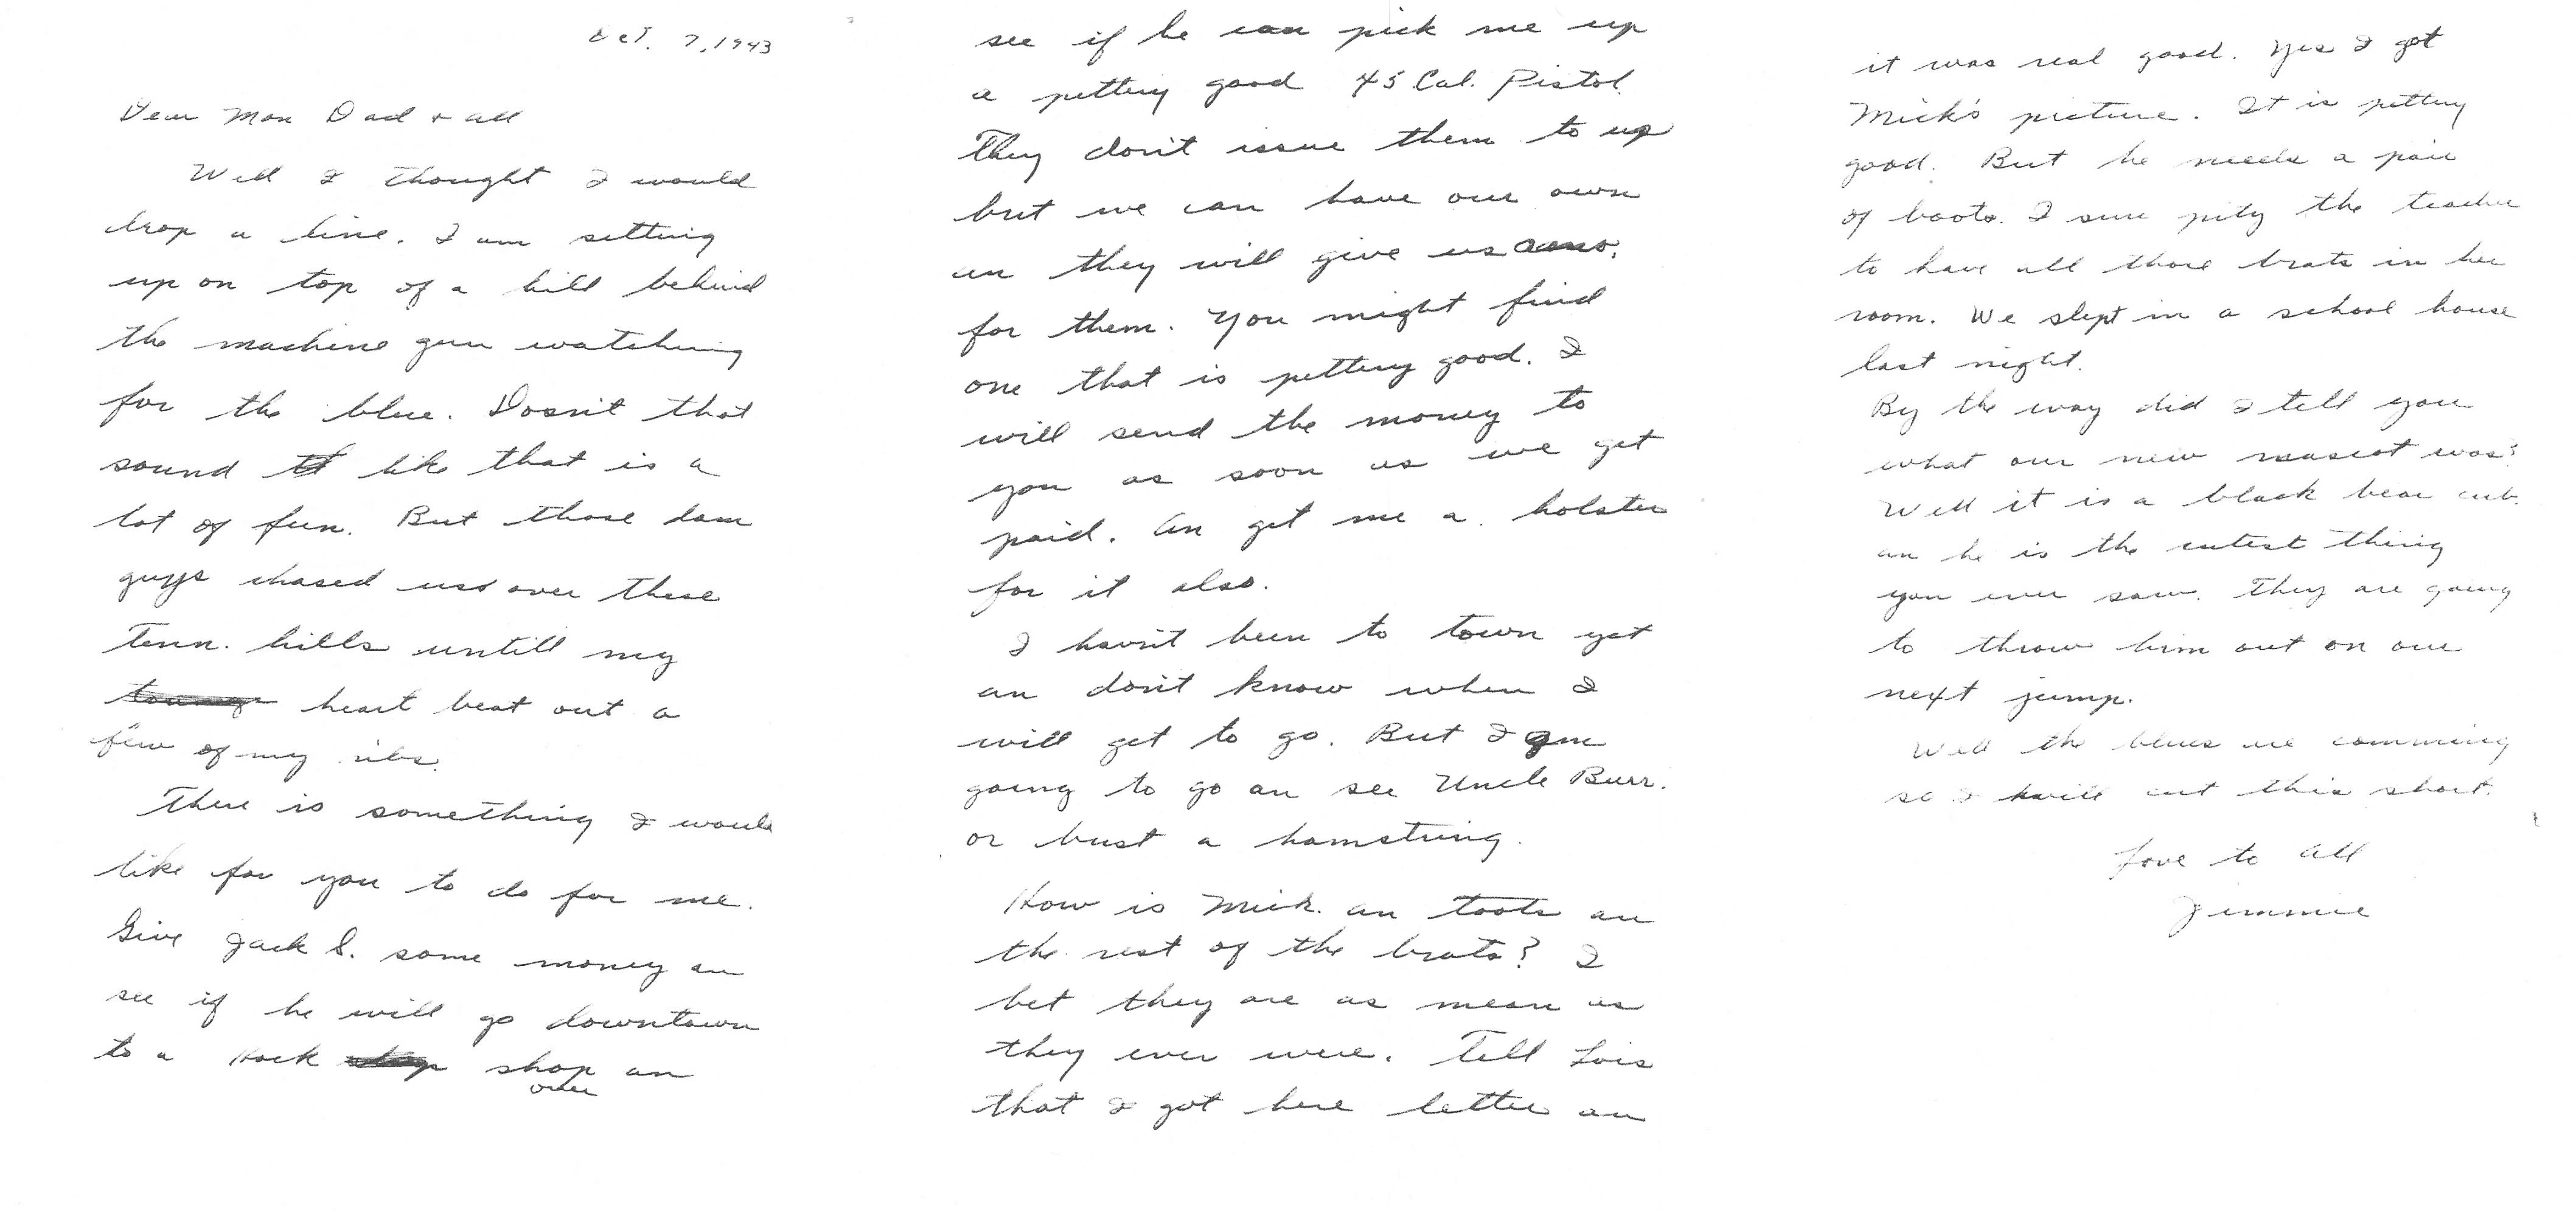 Oct. 7, 1943
Dear Mom Dad + all
Well I thought I would
drop a line. I am setting
up on top of a hill behind
the machine gun watching
for the blue. Dosn't that
sound like that is a
lot of fun. But those dam
guys chased us over these
Tenn. hills untill my
heart beat out a
few of my ribs.
There is something I would
like for you to do for me.
Give Jack S. some money an
see if he will go downtown
to a Hock shop an
over
see if he can pick me up
a pettery good 45 Cal. Pistol.
They don't issue them to us
but we can have our own
an they will give us amo.
for them. You might find
one that is pettery good. I
will send the money to
you as soon as we get
paid. An get me a holster
for it also.
I havn't been to town yet
an don't know when I
will get to go. But I am
going to go an see Uncle Burr.
or bust a hamstring.
How is Mick. an toots an
the rest of the brats? I
bet they are as mean as
they ever were. Tell Lois
that I got here letter an
it was real good. Yes I got
Mick's picture. It is pettery
good. But he needs a pair
of boots. I sure pity the teacher
to have all those brats in her
room. We slept in a school house
last night.
By the way did I tell you
what our new mascot was?
Well it is a black bear cub.
an he is the cutest thing
you ever saw. They are going
to throw him out on our
next jump.
Well the blues are comming
so I will cut this short.
Love to all
Jimmie